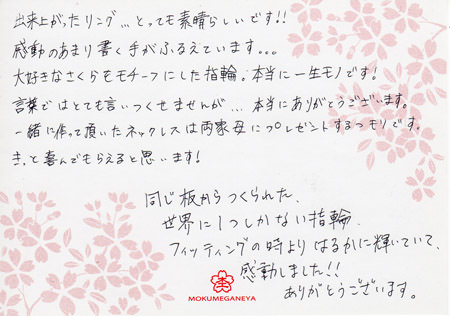 出来上がったリング...とっても素晴らしいです!!
感動のあまり書く手がふるえています...
大好きなさくらをモチーフにした指輪。本当に一生モノです!
言葉ではとても言いつくせませんが...本当にありがとうございます。
一緒に作って頂いたネックレスは両家母にプレゼントするつもりです。
きっと喜んでもらえると思います!
同じ板からつくられた、
世界に1つしかない指輪、
フィッティングの時よりはるかに輝いていて、
感動しました!!
ありがとうございます。
MOKUMEGANEYA